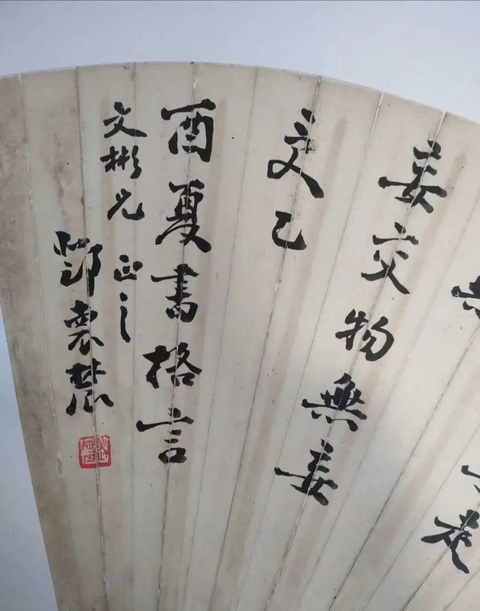 妄交物無妄
交乙
酉夏書格言
文彬兄正之